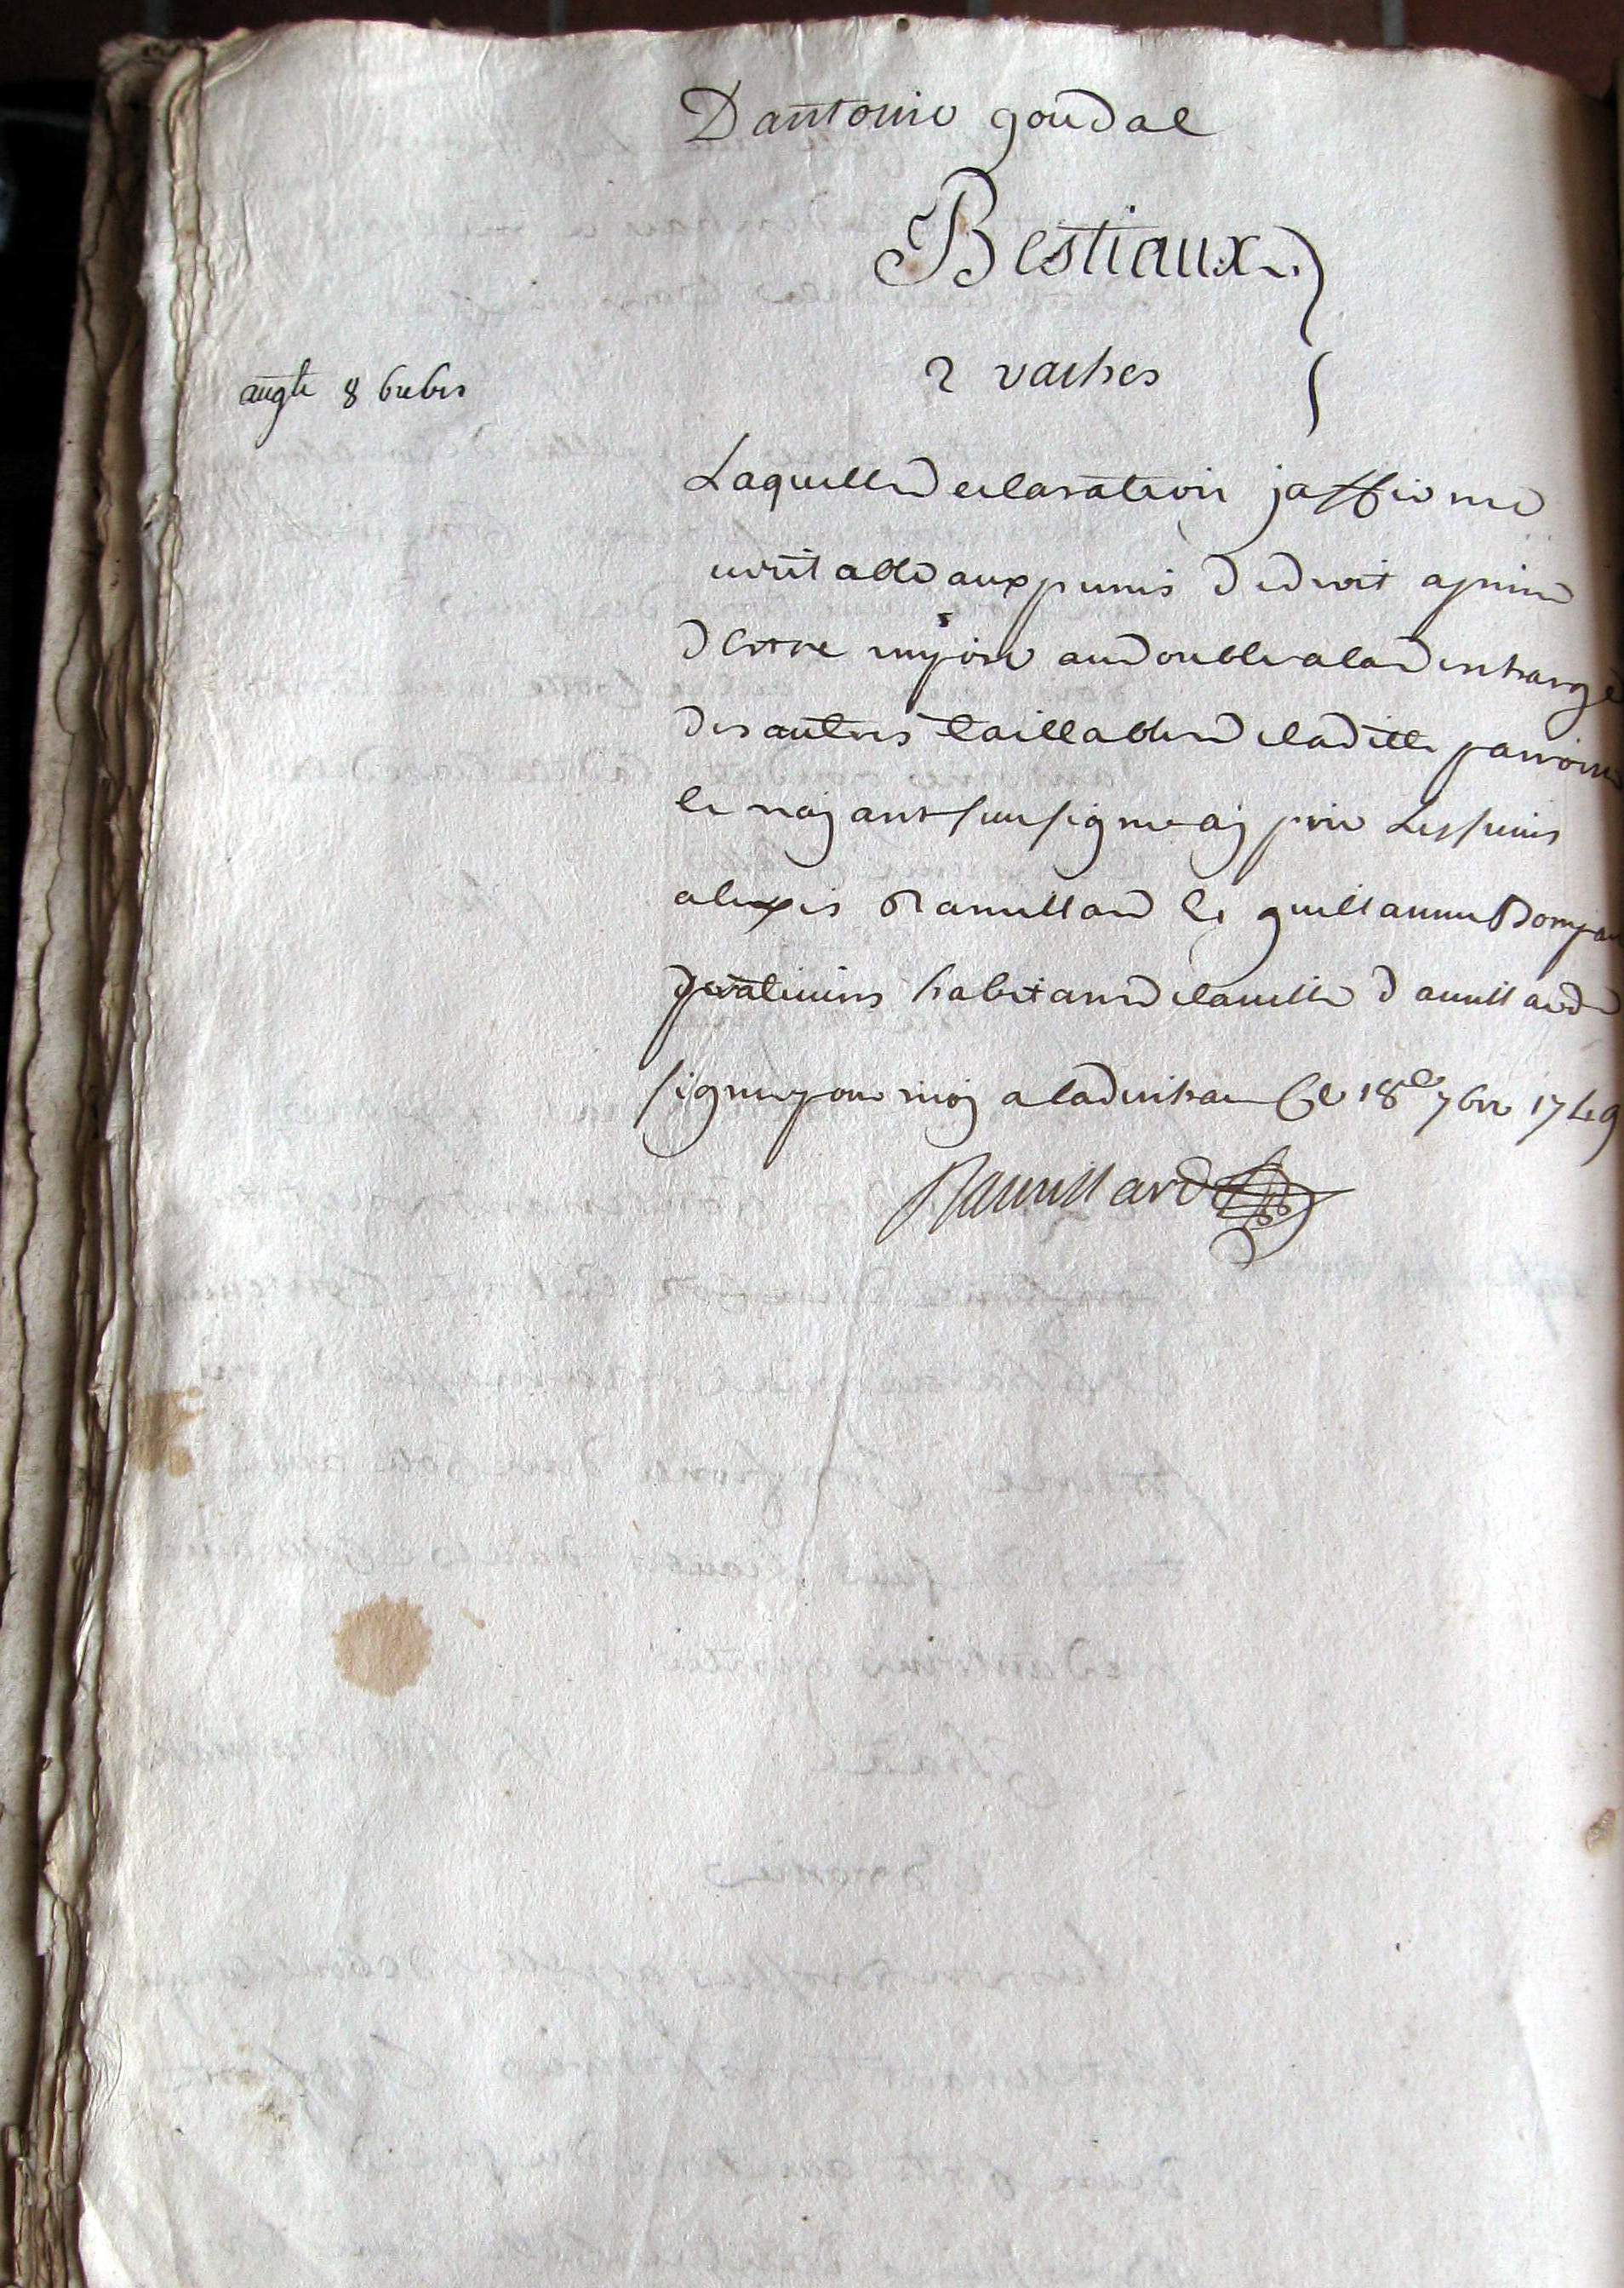 Dantoine goudal
Bestiaux
augte 8 brebis
2 vaches
Laquelle declaration jaffirme
veritable aux peines dedroit apeine
destre impose audouble aladescharge
des autres taillables deladitte parroisse
et nayant sceu signe ay prie Les sieurs
alexis Ramillard et guillaume
praticiens habitans delaville
signer pour moy aladechar ce 18e 7bre 1749
Ramillard